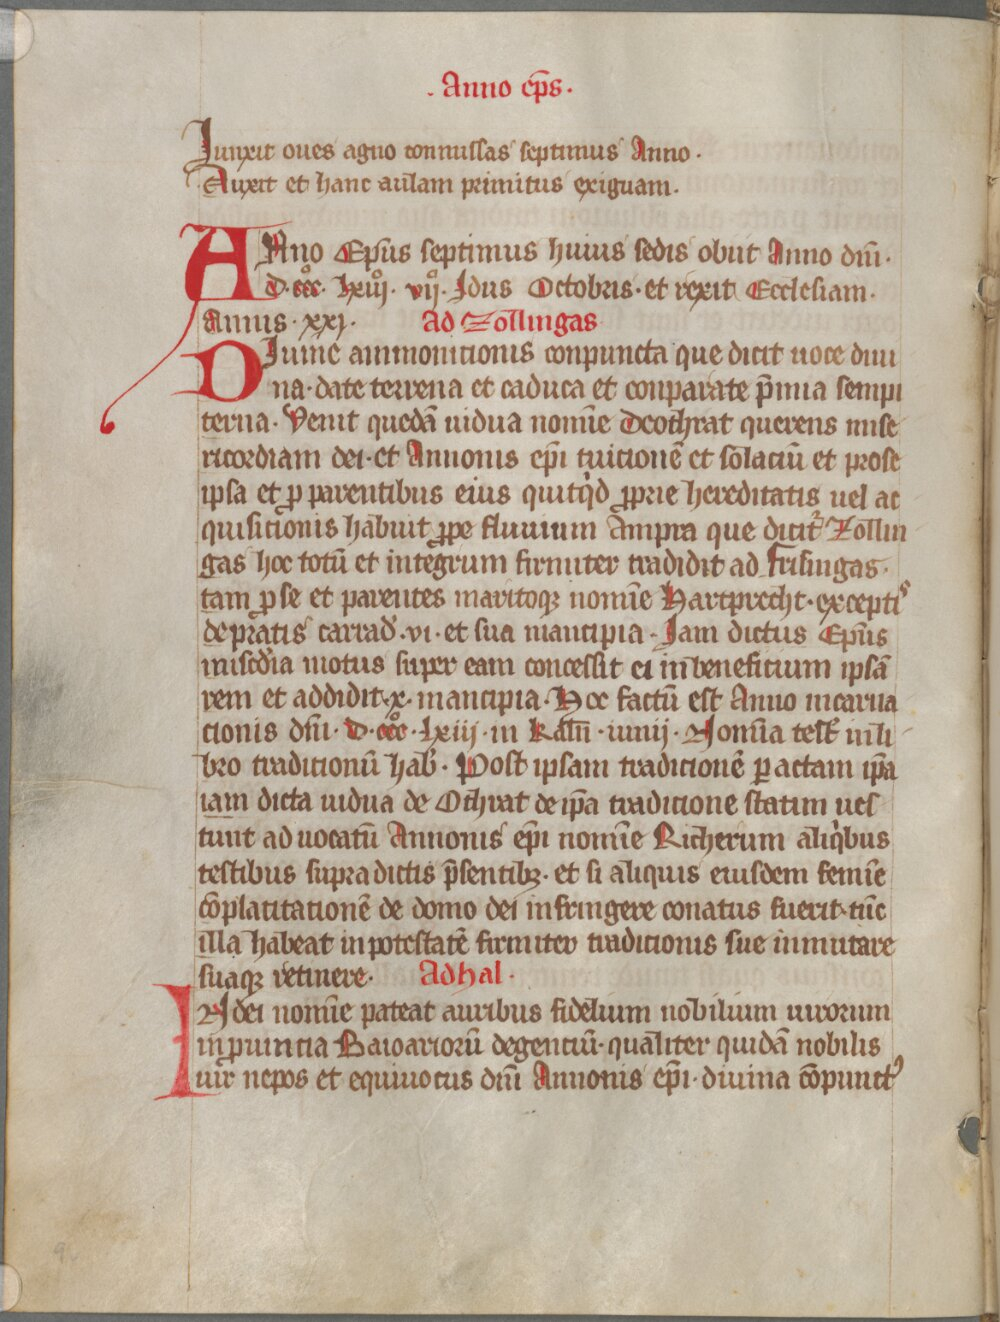 . Anno ep̅s .
Iunxit oues agno commissas septimus Anno .
Auxit et hanc aulam primitus exiguam .
ANno Ep̅us septimus huius sedis obiit Anno dn̅i .
d . cccͦ . lxiiijͦ . vijͦ . Idus Octobris . et rexit Ecclesiam .
Annis . xxj . Ad Zollingas
DIuine ammonicionis conpuncta que dicit uoce diui
na . date terrena et caduca et conparate p̅mia sempi
terna . Venit quedā uidua nomīe Deothrat querens mise
ricordiam dei . et Annonis ep̅i tuicionē et solaciū et pro se
ipsa et ꝑ parentibus eius quitqͥd ꝓprie hereditatis uel ac
quisicionis habuit ꝓpe fluuium Ampra que dicit᷑ Zollin
gas hoc totū et integrum firmiter tradidit ad Frisingas .
tam ꝑ se et parentes maritoqꝫ nomīe Hartprecht . exceptiˢ
de pratis carrad̄ . vi . et sua mancipia . Iam dictus Ep̅us
misc̅dia motus super eam concessit ei in beneficium ipsā
rem et addidit . x . mancipia . Hoc factū est Anno incarna
cionis dn̅i . d . cccͦ . lxiij . in kalн̄ . iunij . Nomīa test̄ in li
bro tradicionū hab̄ . Post ipsam tradicionē ꝑactam ip̅a
iam dicta uidua de Othrat de ip̅a tradicione statim ues
tiuit aduocatū Annonis ep̅i nomīe Richerum aliqͥbus
testibus supradictis p̅sentibꝫ . et si aliquis eiusdem femīe
co̅placitationē de domo dei infringere conatus fuerit . tūc
illa habeat in potestatē firmiter tradicionis sue inmutare
suaqꝫ retinere . Ad hal .
IN dei nomīe pateat auribus fidelium nobilium uirorum
in ꝓuincia Baioariorū degenciū . qualiter quidā nobilis
uir nepos et equiuocus dn̅i Annonis ep̅i . diuina co̅punctꝰ